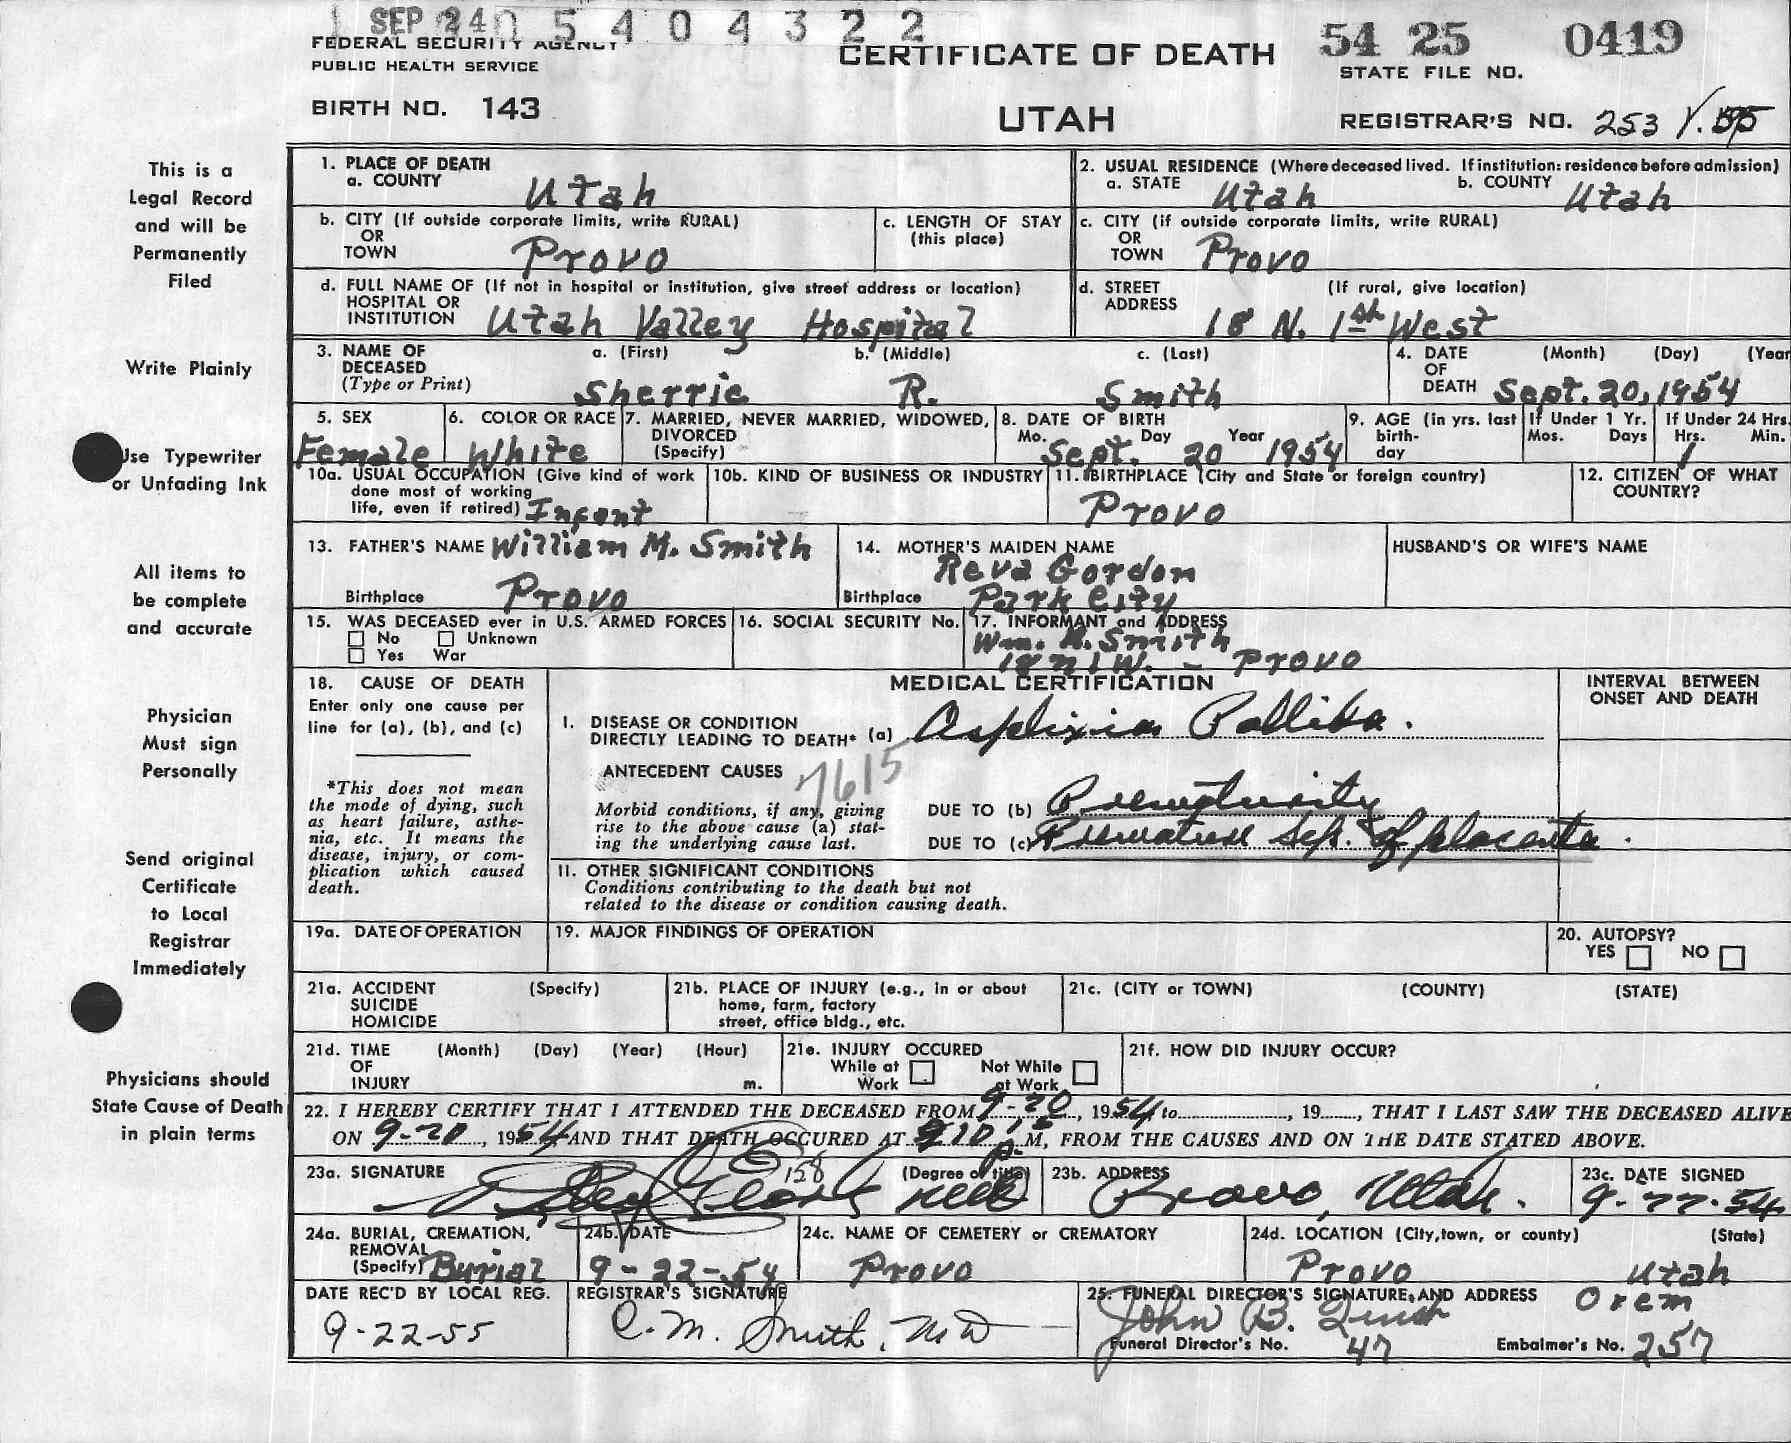 SEP 24 0 5 4 0 4 3 2 2
FEDERAL SECURITY AGENCY
PUBLIC HEALTH SERVICE
CERTIFICATE OF DEATH
54 25 0419
STATE FILE NO.
BIRTH NO. 143
UTAH
REGISTRAR'S NO. 253
This is a
Legal Record
and will be
Permanently
Filed
Write Plainly
Use Typewriter
or Unfading Ink
All items to
be complete
and accurate
Physician
Must sign
Personally
Send original
Certificate
to Local
Registrar
Immediately
Physicians should
State Cause of Death
in plain terms
1. PLACE OF DEATH
a. COUNTY Utah
2. USUAL RESIDENCE (Where deceased lived. If institution: residence before admission)
a. STATE Utah b. COUNTY Utah
b. CITY (If outside corporate limits, write RURAL)
OR
TOWN Provo
c. LENGTH OF STAY
(this place)
c. CITY (if outside corporate limits, write RURAL)
OR
TOWN Provo
d. FULL NAME OF (If not in hospital or institution, give street address or location)
HOSPITAL OR
INSTITUTION Utah Valley Hospital
d. STREET (If rural, give location)
ADDRESS
18 N. 1st West
3. NAME OF DECEASED (Type or Print)
a. (First) b. (Middle) c. (Last)
Sherrie R. Smith
4. DATE OF DEATH (Month) (Day) (Year
Sept. 20, 1954
5. SEX
Female
6. COLOR OR RACE
White
7. MARRIED, NEVER MARRIED, WIDOWED,
DIVORCED
(Specify)
8. DATE OF BIRTH
Mo. Day Year
Sept. 20 1954
9. AGE (in yrs. last
birth-
day
If Under 1 Yr.
Mos. Days
If Under 24 Hrs.
Hrs. Min.
1
10a. USUAL OCCUPATION (Give kind of work
done most of working
life, even if retired) Infant
10b. KIND OF BUSINESS OR INDUSTRY
11. BIRTHPLACE (City and State or foreign country)
Provo
12. CITIZEN OF WHAT
COUNTRY?
13. FATHER'S NAME William M. Smith
Birthplace Provo
14. MOTHER'S MAIDEN NAME
Reva Gordon
Birthplace Park City
HUSBAND'S OR WIFE'S NAME
15. WAS DECEASED ever in U.S. ARMED FORCES
No Unknown
Yes War
16. SOCIAL SECURITY No.
17. INFORMANT and ADDRESS
Wm. M. Smith
18 N 1 W. - Provo
18. CAUSE OF DEATH
Enter only one cause per
line for (a), (b), and (c)
*This does not mean
the mode of dying, such
as heart failure, asthe-
nia, etc. It means the
disease, injury, or com-
plication which caused
death.
MEDICAL CERTIFICATION
INTERVAL BETWEEN
ONSET AND DEATH
I. DISEASE OR CONDITION
DIRECTLY LEADING TO DEATH* (a) Asphixia Pallida.
ANTECEDENT CAUSES 7615
Morbid conditions, if any, giving
rise to the above cause (a) stat-
ing the underlying cause last.
DUE TO (b) Prematurity
DUE TO (c) Premature Sep. of placenta.
II. OTHER SIGNIFICANT CONDITIONS
Conditions contributing to the death but not
related to the disease or condition causing death.
19a. DATE OF OPERATION
19. MAJOR FINDINGS OF OPERATION
20. AUTOPSY?
YES NO
21a. ACCIDENT (Specify)
SUICIDE
HOMICIDE
21b. PLACE OF INJURY (e.g., in or about
home, farm, factory
street, office bldg., etc.
21c. (CITY or TOWN) (COUNTY) (STATE)
21d. TIME (Month) (Day) (Year) (Hour)
OF
INJURY m.
21e. INJURY OCCURED
While at Work Not While at Work
21f. HOW DID INJURY OCCUR?
22. I HEREBY CERTIFY THAT I ATTENDED THE DECEASED FROM 9-20, 1954 to , 19 , THAT I LAST SAW THE DECEASED ALIVE
ON 9-20, 1954 AND THAT DEATH OCCURED AT M, FROM THE CAUSES AND ON THE DATE STATED ABOVE.
23a. SIGNATURE 158 (Degree or title)
23b. ADDRESS
Provo, Utah.
23c. DATE SIGNED
9-22-54
24a. BURIAL, CREMATION,
REMOVAL
(Specify) Burial
24b. DATE
9-22-54
24c. NAME OF CEMETERY or CREMATORY
Provo
24d. LOCATION (City, town, or county) (State)
Provo Utah
DATE REC'D BY LOCAL REG.
9-22-55
REGISTRAR'S SIGNATURE
C. M. Smith, MD
25. FUNERAL DIRECTOR'S SIGNATURE AND ADDRESS Orem
John B.
Funeral Director's No. 47
Embalmer's No. 257